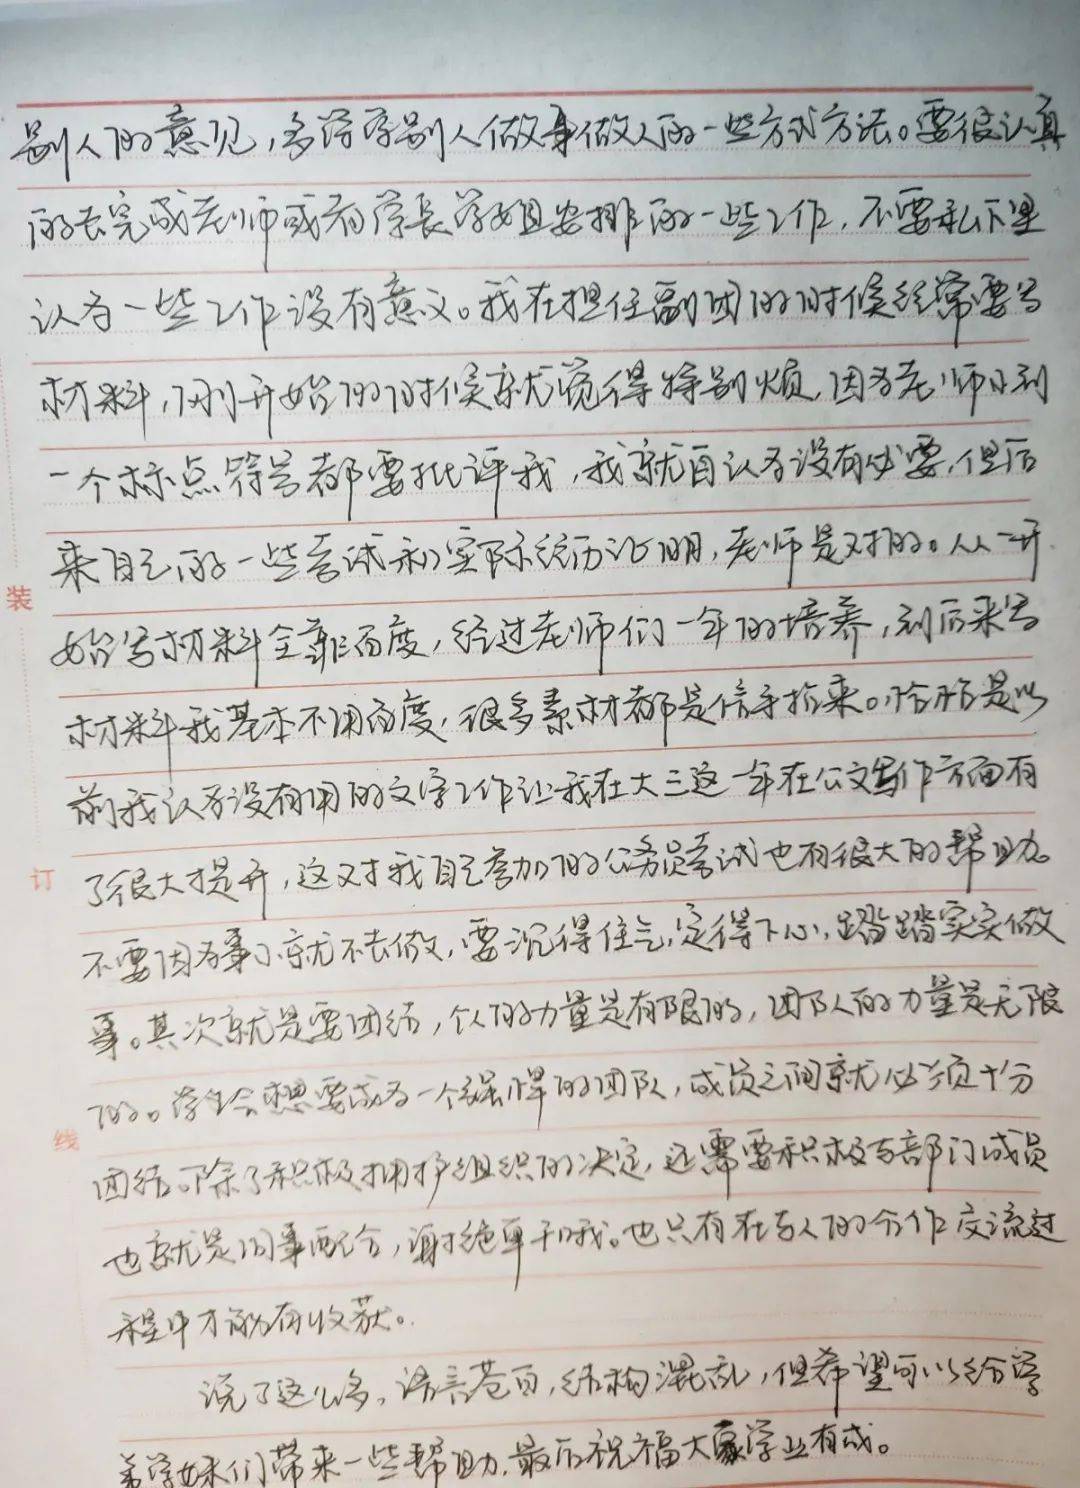 别人的意见,多海学别人做事做人的一些方式方法。要很认真
的去完成老师或者学长学姐安排的一些工作,不要私下里
认为一些工作没有意义。我在担任副团的时候经常要写
材料,刚开始的时候就觉得特别烦,因为老师见到
一个标点符号都要批评我,我就自认为没有必要,但后
来自己的一些考试和实际经历证明,老师是对的。从一开
始写材料全靠百度,经过老师们一年的培养,到后来写
材料我基本不用百度,很多素材都是信手拈来。恰恰是以
前我认为没有用的文字工作让我在大三这一年在公文写作方面有
了很大提升,这对我自己参加的公务员考试也有很大的帮助。
不要因为事小就不去做,要沉得住气,定得下心,踏踏实实做
事。其次就是要团结,个人的力量是有限的,团队的力量是无限
的。学生会想要成为一个强悍的团队,成员之间就必须十分
团结。除了积极拥护组织的决定,还需要积极与部门成员
也就是同事配合,谢绝单干哦。也只有在与人的合作交流过
程中才能有收获。
说了这么多,语言苍白,结构混乱,但希望可以给学
弟学妹们带来一些帮助,最后祝福大家学业有成。
装
订
线